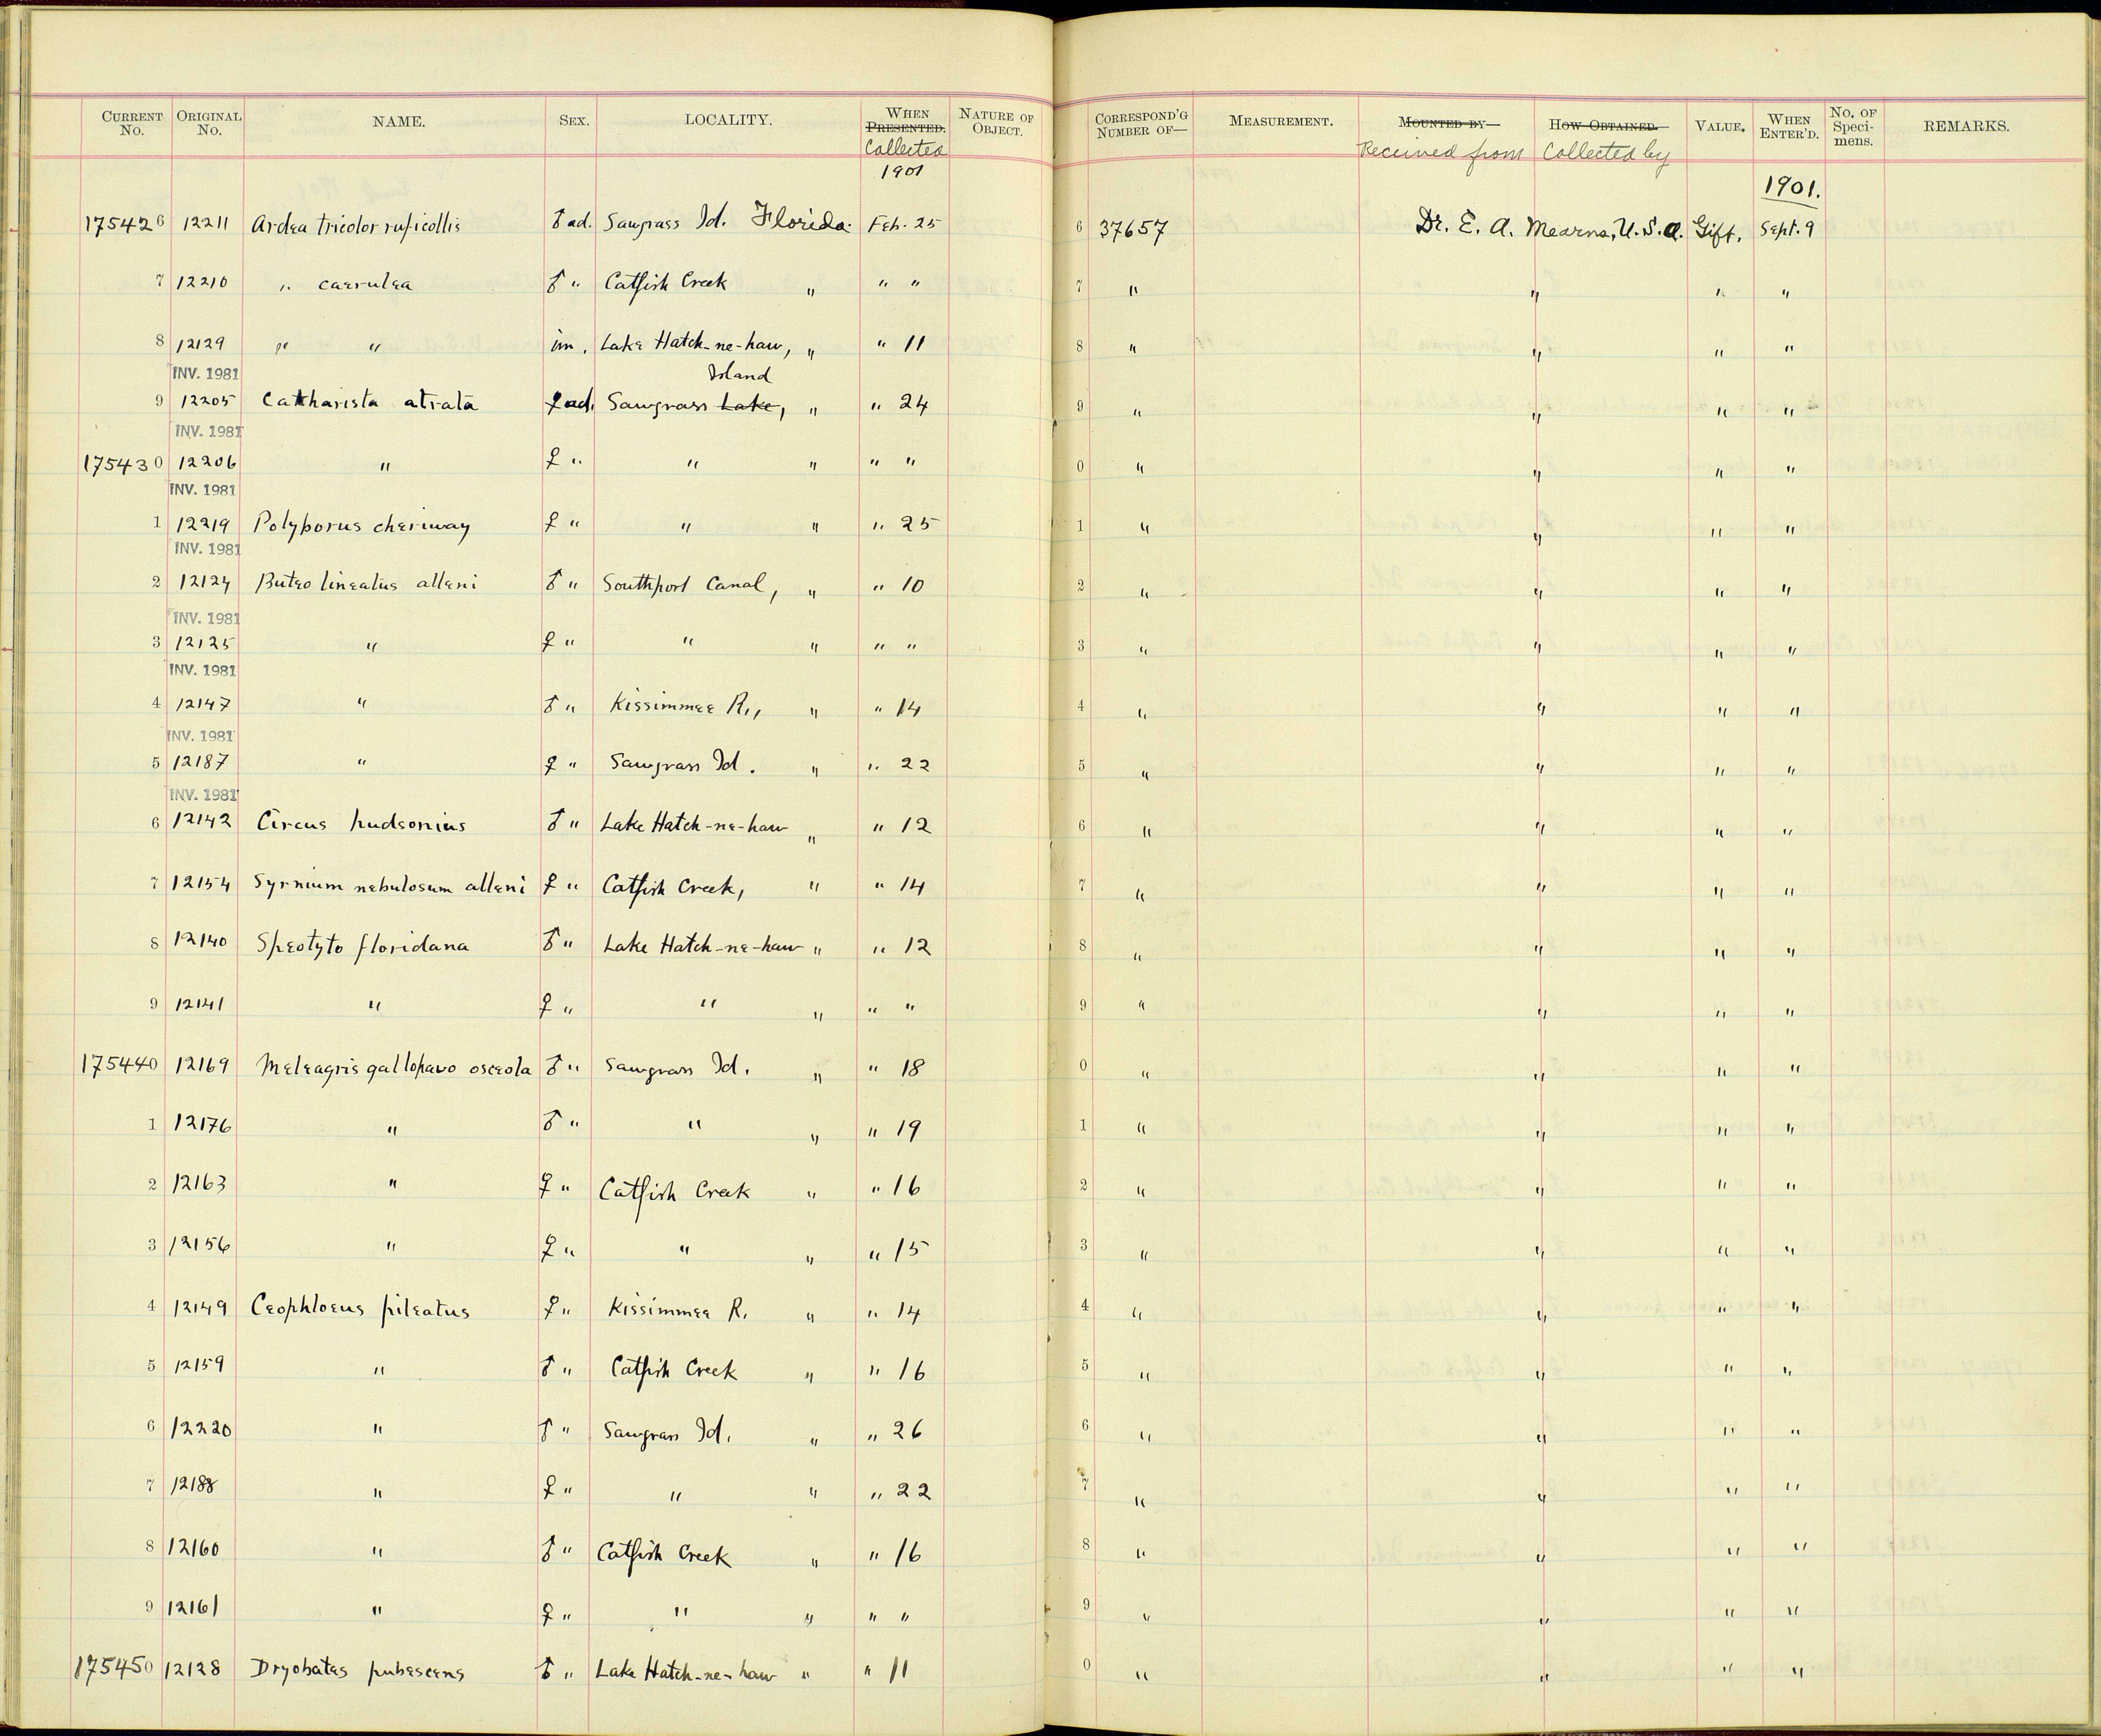 CURRENT No. ORIGINAL No. NAME. SEX. LOCALITY. WHEN PRESENTED. NATURE OF OBJECT. CORRESPOND'G NUMBER OF— MEASUREMENT. MOUNTED BY— HOW OBTAINED. VALUE. WHEN ENTER'D. No. OF Speci-mens. REMARKS.
Collected Received from Collected by
1901 1901.
175426 12211 Ardea tricolor ruficollis ♂ ad. Sawgrass Id. Florida. Feb. 25 6 37657 Dr. E. A. Mearns, U.S.A. Gift. Sept. 9
7 12210 " caerulea ♂ " Catfish Creek " " " 7 " " " "
8 12129 " " im. Lake Hatch-ne-haw, " " 11 8 " " " "
INV. 1981 Island
9 12205 Catharista atrata ♀ ad. Sawgrass Lake, " " 24 9 " " " "
INV. 1981
175430 12206 " ♀ " " " " " 0 " " " "
INV. 1981
1 12219 Polyborus cheriway ♀ " " " " 25 1 " " " "
INV. 1981
2 12124 Buteo lineatus alleni ♂ " Southport Canal, " " 10 2 " " " "
INV. 1981
3 12125 " ♀ " " " " " 3 " " " "
INV. 1981
4 12147 " ♂ " Kissimmee R., " " 14 4 " " " "
INV. 1981
5 12187 " ♀ " Sawgrass Id. " " 22 5 " " " "
INV. 1981
6 12142 Circus hudsonius ♂ " Lake Hatch-ne-haw " " 12 6 " " " "
7 12154 Syrnium nebulosum alleni ♀ " Catfish Creek, " " 14 7 " " " "
8 12140 Speotyto floridana ♂ " Lake Hatch-ne-haw " " 12 8 " " " "
9 12141 " ♀ " " " " " 9 " " " "
175440 12169 Meleagris gallopavo osceola ♂ " Sawgrass Id. " " 18 0 " " " "
1 12176 " ♂ " " " " 19 1 " " " "
2 12163 " ♀ " Catfish Creek " " 16 2 " " " "
3 12156 " ♀ " " " " 15 3 " " " "
4 12149 Ceophloeus pileatus ♀ " Kissimmee R. " " 14 4 " " " "
5 12159 " ♂ " Catfish Creek " " 16 5 " " " "
6 12220 " ♂ " Sawgrass Id. " " 26 6 " " " "
7 12188 " ♀ " " " " 22 7 " " " "
8 12160 " ♂ " Catfish Creek " " 16 8 " " " "
9 12161 " ♀ " " " " " 9 " " " "
175450 12128 Dryobates pubescens ♂ " Lake Hatch-ne-haw " " 11 0 " " " "